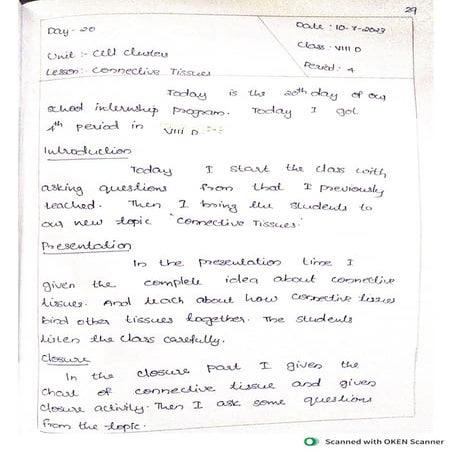 29
Day - 20
Date : 10-7-2023
Unit :- Cell Clusters
Class :- VIII D
Lesson:- Connective Tissues
Period : 4
Today is the 20th day of our
school internship program. Today I got
4th period in VIII D
Introduction
Today I start the class with
asking questions from that I previously
teached. Then I bring the students to
our new topic 'Connective Tissues'
Presentation
In the presentation time I
given the complete idea about connective
tissues. And teach about how connective tissues
bind other tissues together. The students
listen the class carefully.
Closure
In the closure part I given the
chart of connective tissue and given
closure activity. Then I ask some questions
from the topic.
Scanned with OKEN Scanner